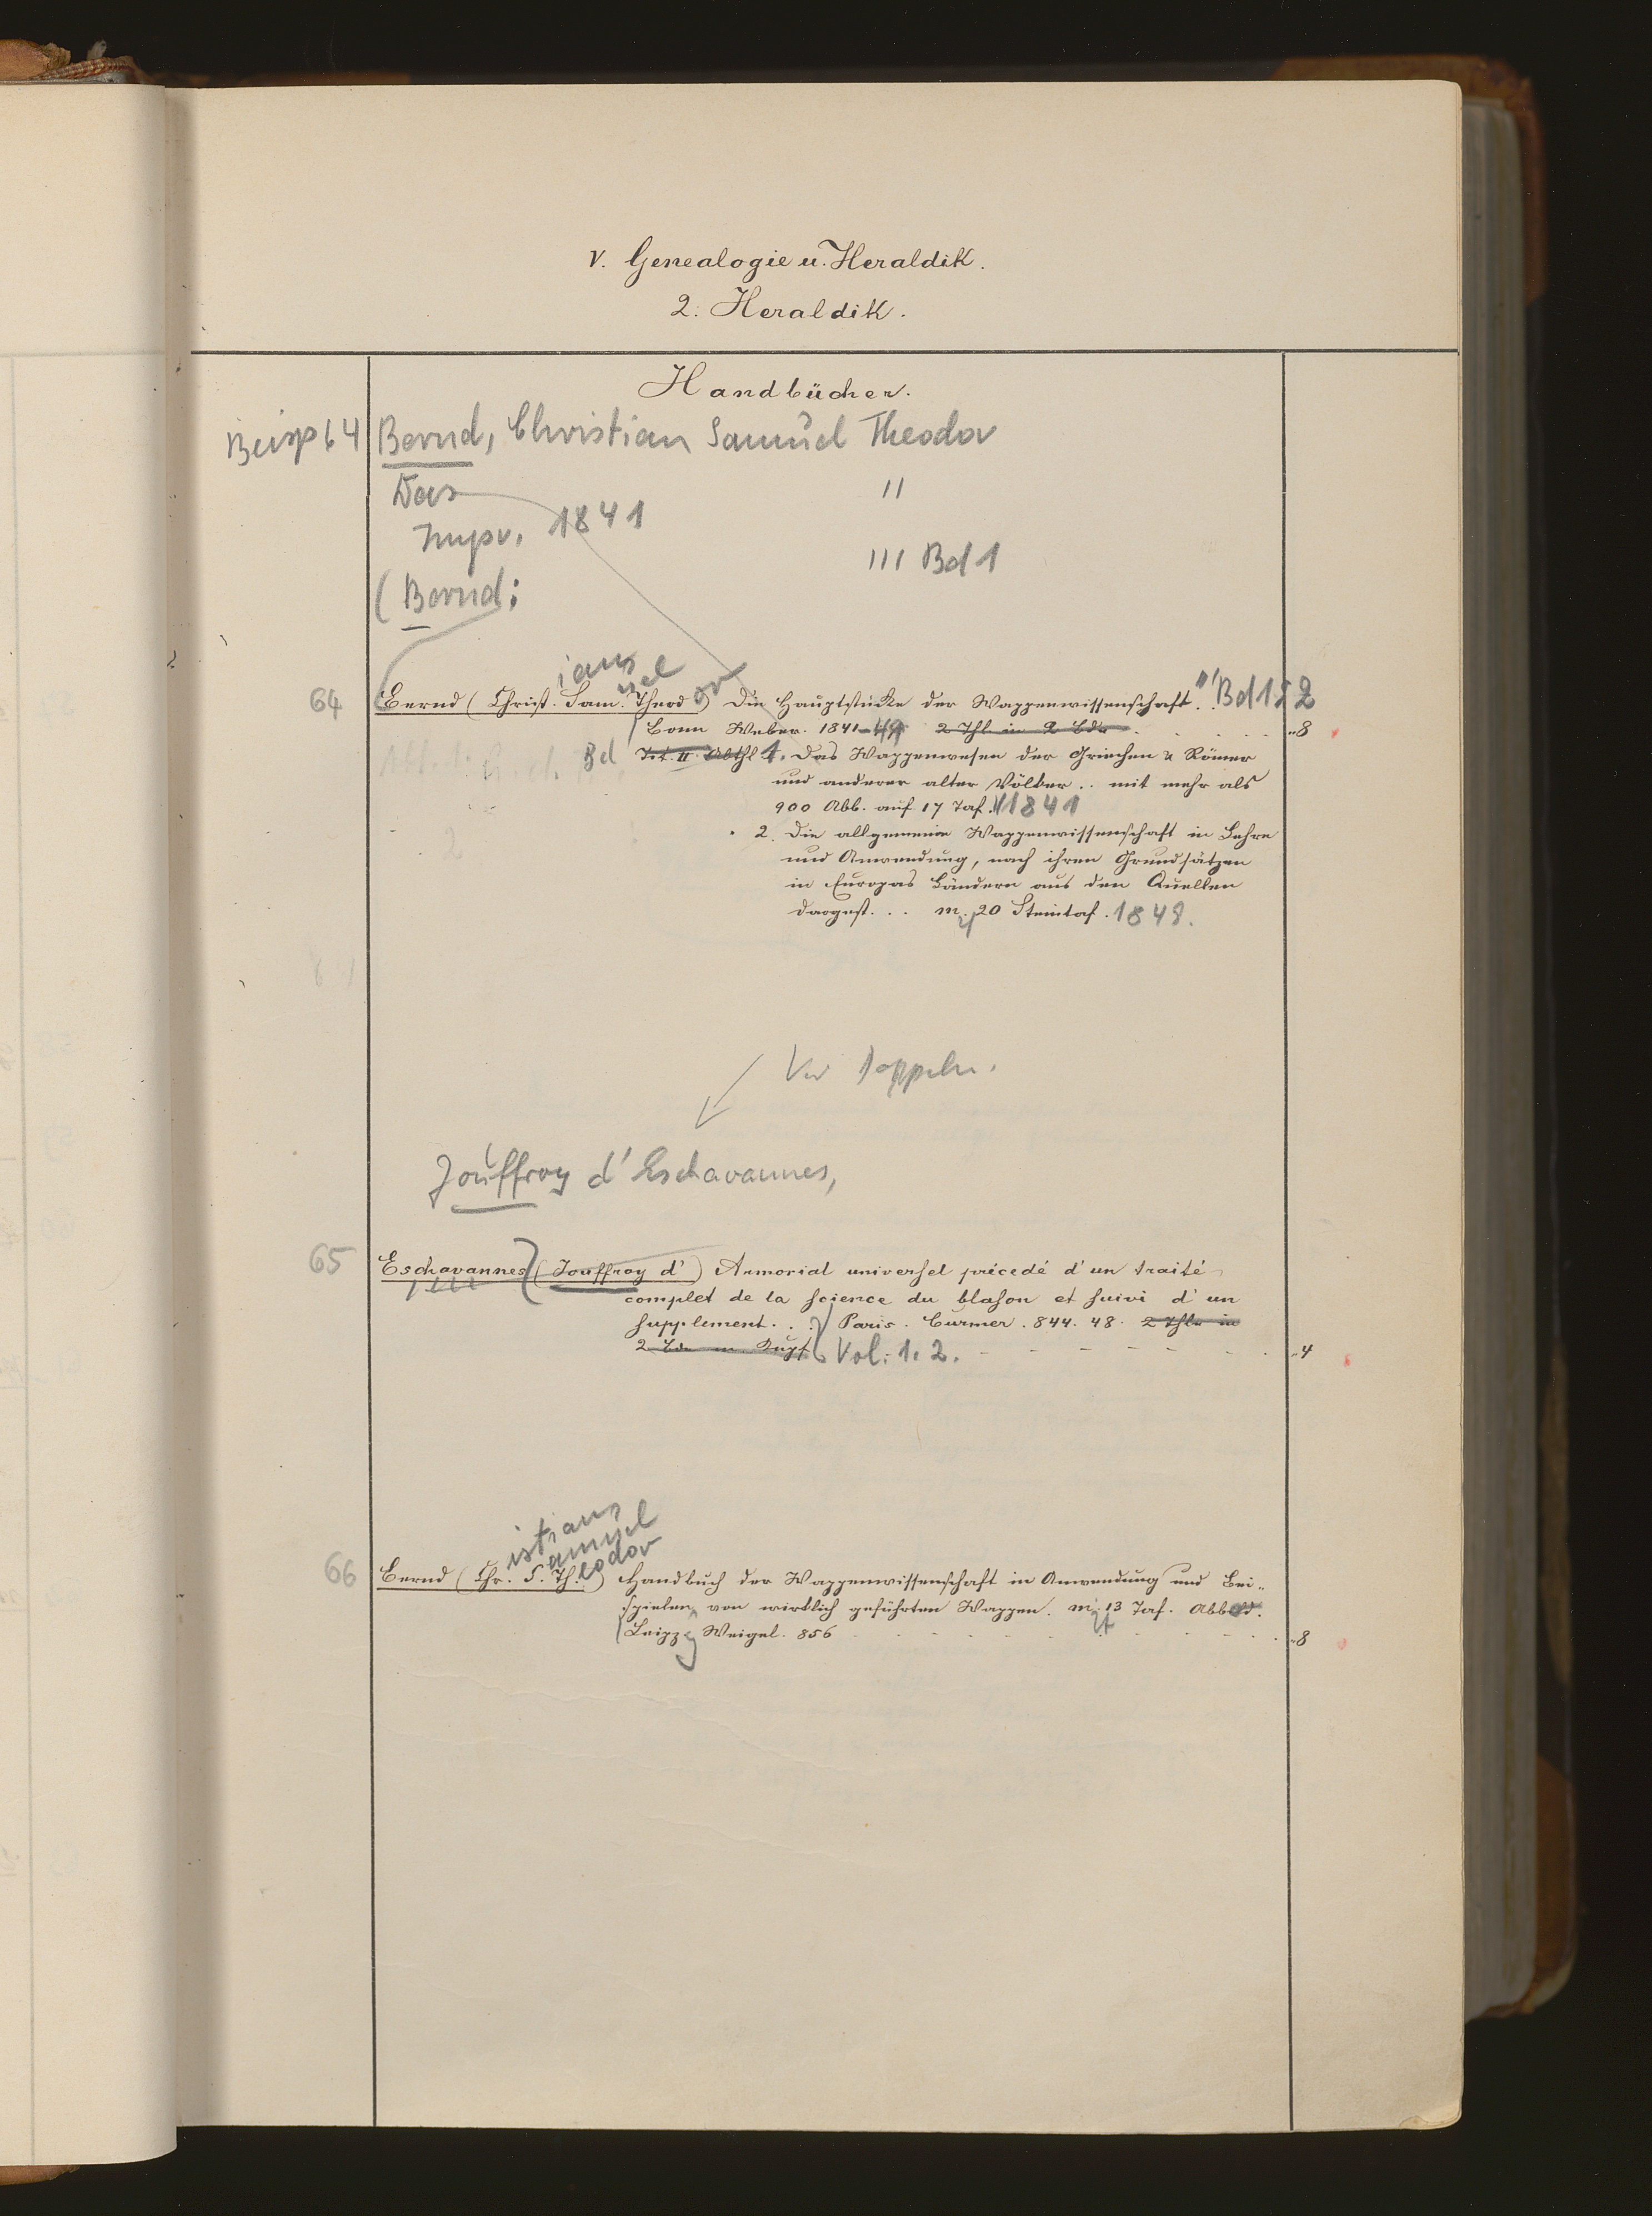 V. Genealogie u. Heraldik.
2. Heraldik.
Handbücher.
64 Bernd, Christian Samuel Theodor
Das "
Impr. 1841
III Bd 1
(Bernd:
ians
uel
64 Bernd (Christ. Sam. Theodor) Die Hauptstücke der Wappenwissenschaft. Bd 1 2
Bonn Weber. 1841-49 2 Thl. in 2 Bdn. 8
Bd Tit. II. Abthl 1. Das Wappenwesen der Griechen & Römer
und anderer alter Völker .. mit mehr als
900 Abb. auf 17 Taf. 1841
2. Die allgemeine Wappenwissenschaft in Lehre
und Anwendung, nach ihren Grundsätzen
in Europas Ländern aus den Quellen
dargest. . . m. 20 Steintaf. 1849.
Jouffroy d'Eschavannes,
65 Eschavannes (Jouffroy d') Armorial universel précedé d'un traité
complet de la science du blason et suivi d'un
supplement. . . Paris. Curmer. 844. 48. 2 Thle in
2 Bdn m. Kupf. Vol: 1. 2. 4
istians
amuel
66 Bernd (Chr. S. Theodor) Handbuch der Wappenwissenschaft in Anwendung und Bei-
spielen von wirklich geführten Wappen. m. 13 Taf. Abbild.
Leipzg Weigel. 856 8